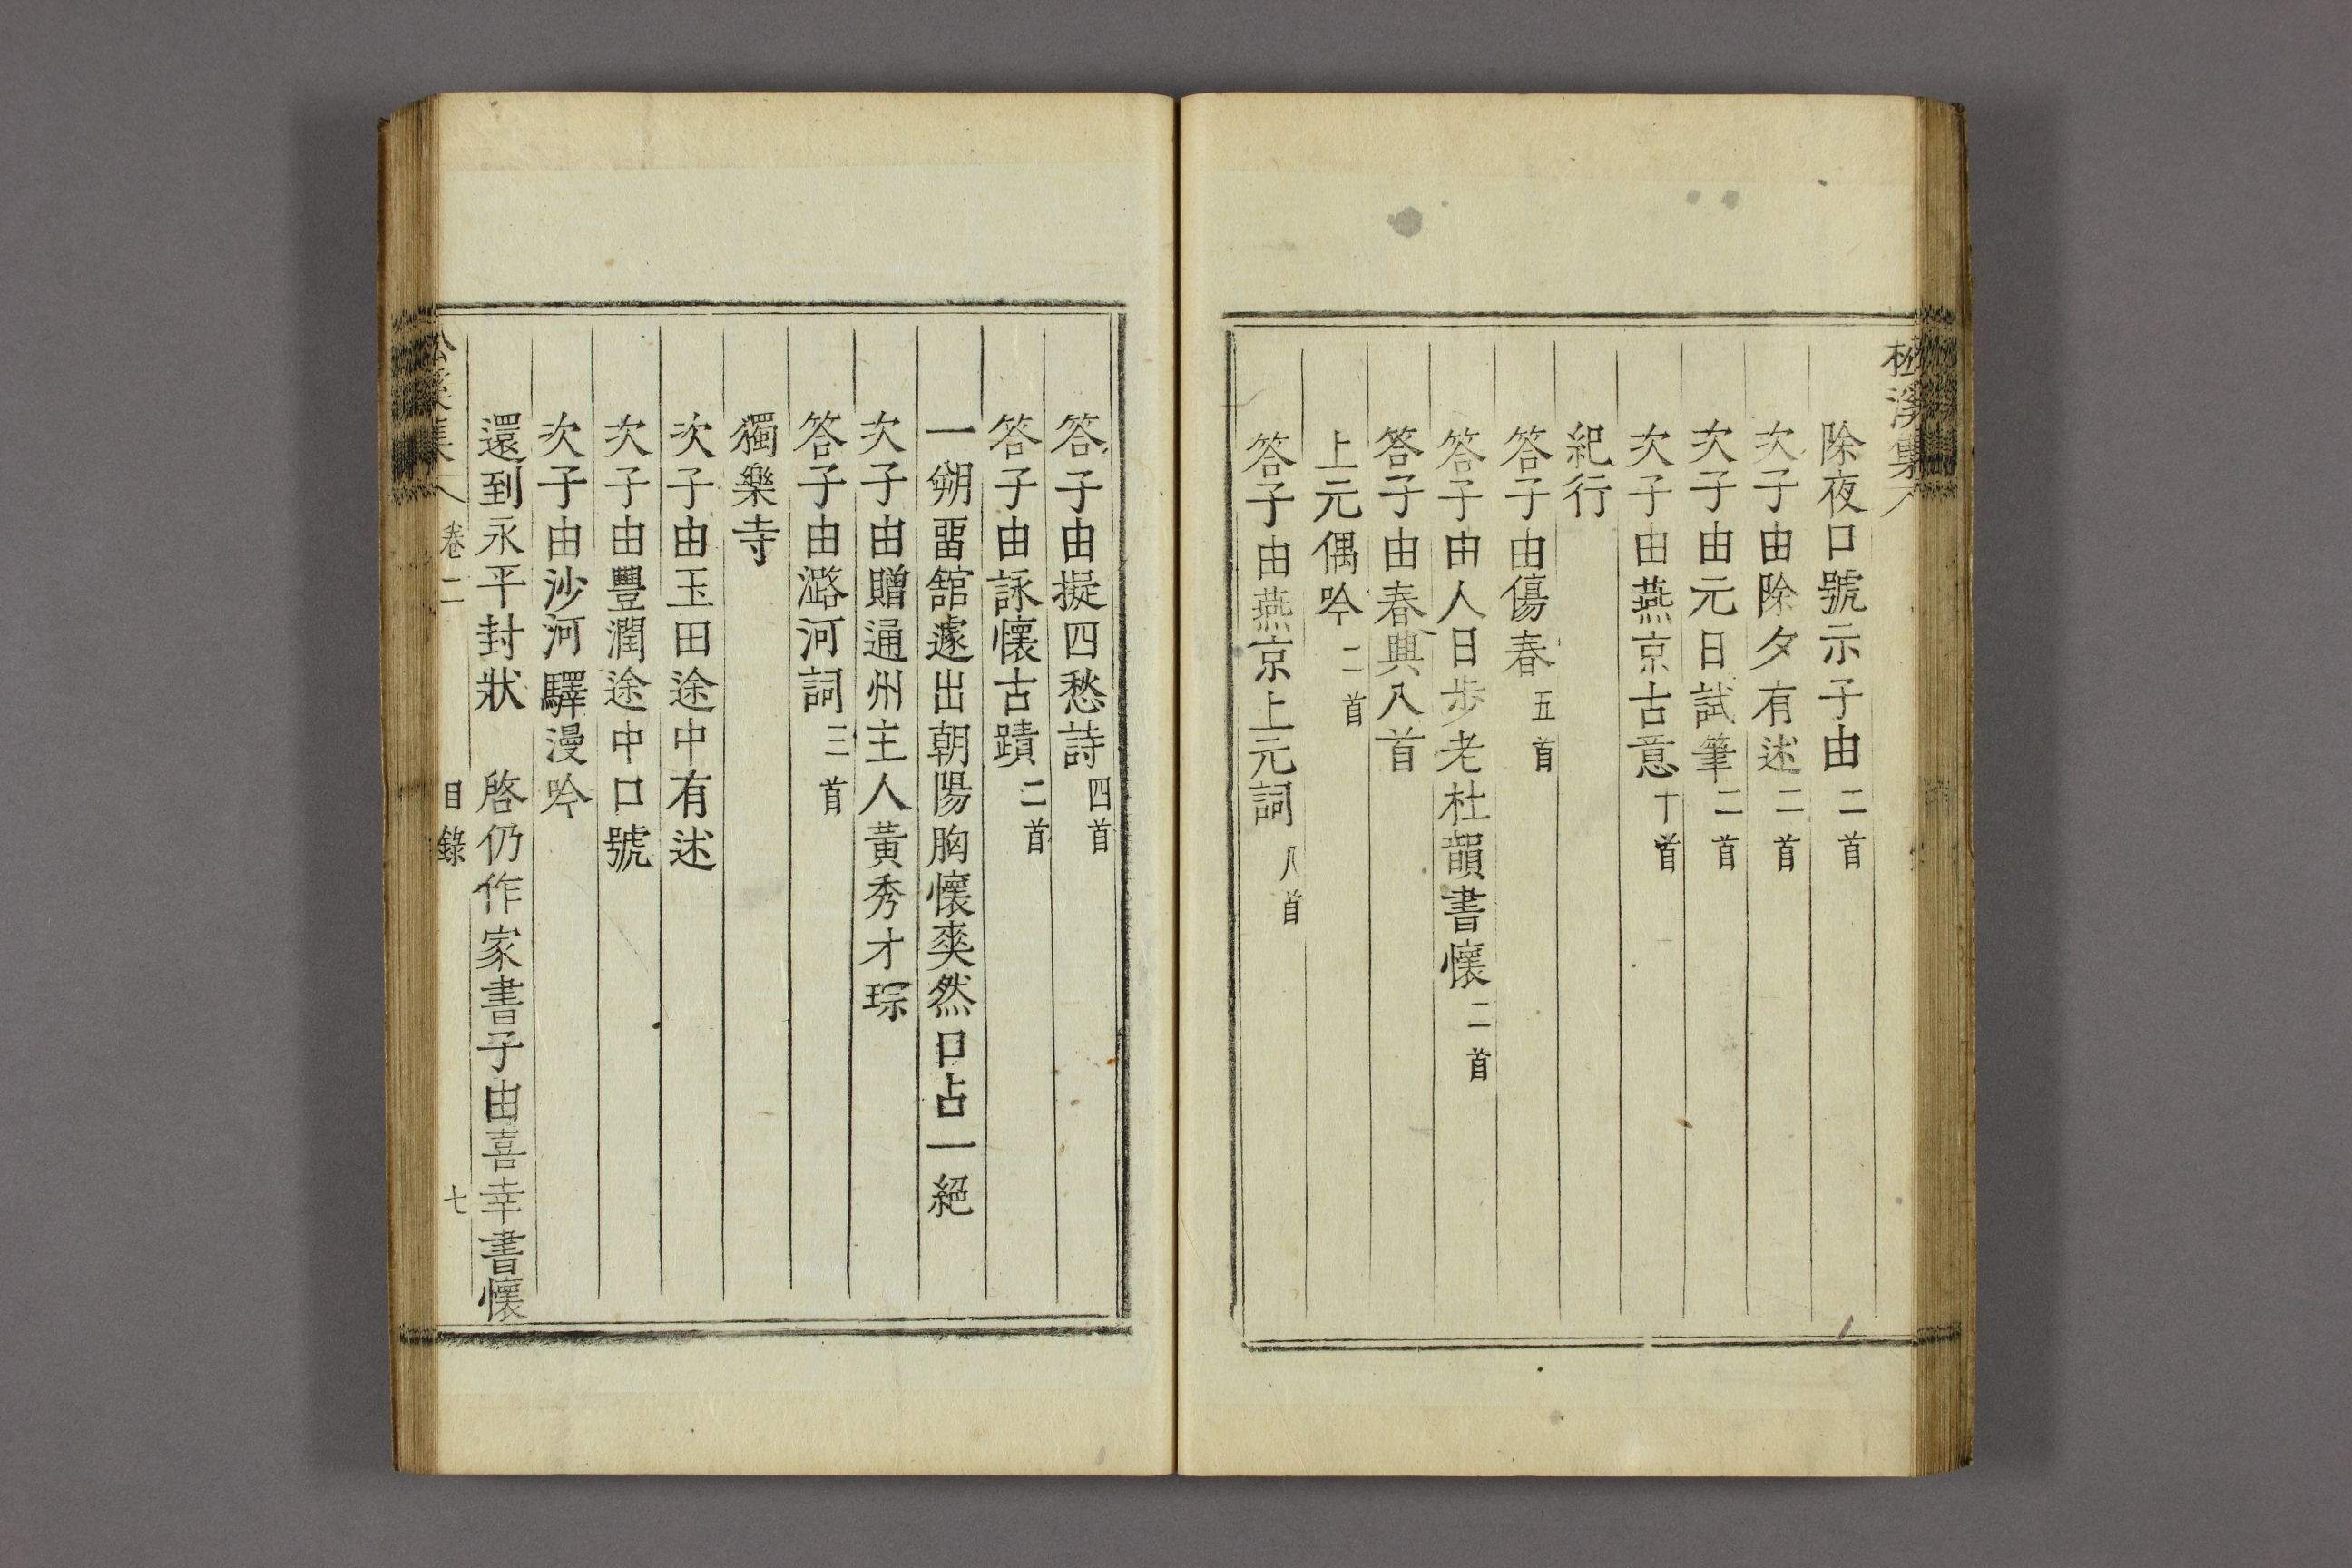 松溪集
除夜口號示子由二首
次子由除夕有述二首
次子由元日試筆二首
次子由燕京古意十首
紀行
答子由傷春五首
答子由人日步老杜韻書懷二首
答子由春興八首
上元偶吟二首
答子由燕京上元詞八首
答子由擬四愁詩四首
答子由詠懷古蹟二首
一朔畱舘遽出朝陽胸懷爽然口占一絕
次子由贈通州主人黃秀才琮
答子由潞河詞三首
獨樂寺
次子由玉田途中有述
次子由豐潤途中口號
次子由沙河驛漫吟
還到永平封狀 啓仍作家書子由喜幸書懷
松溪集 卷二 目錄 七